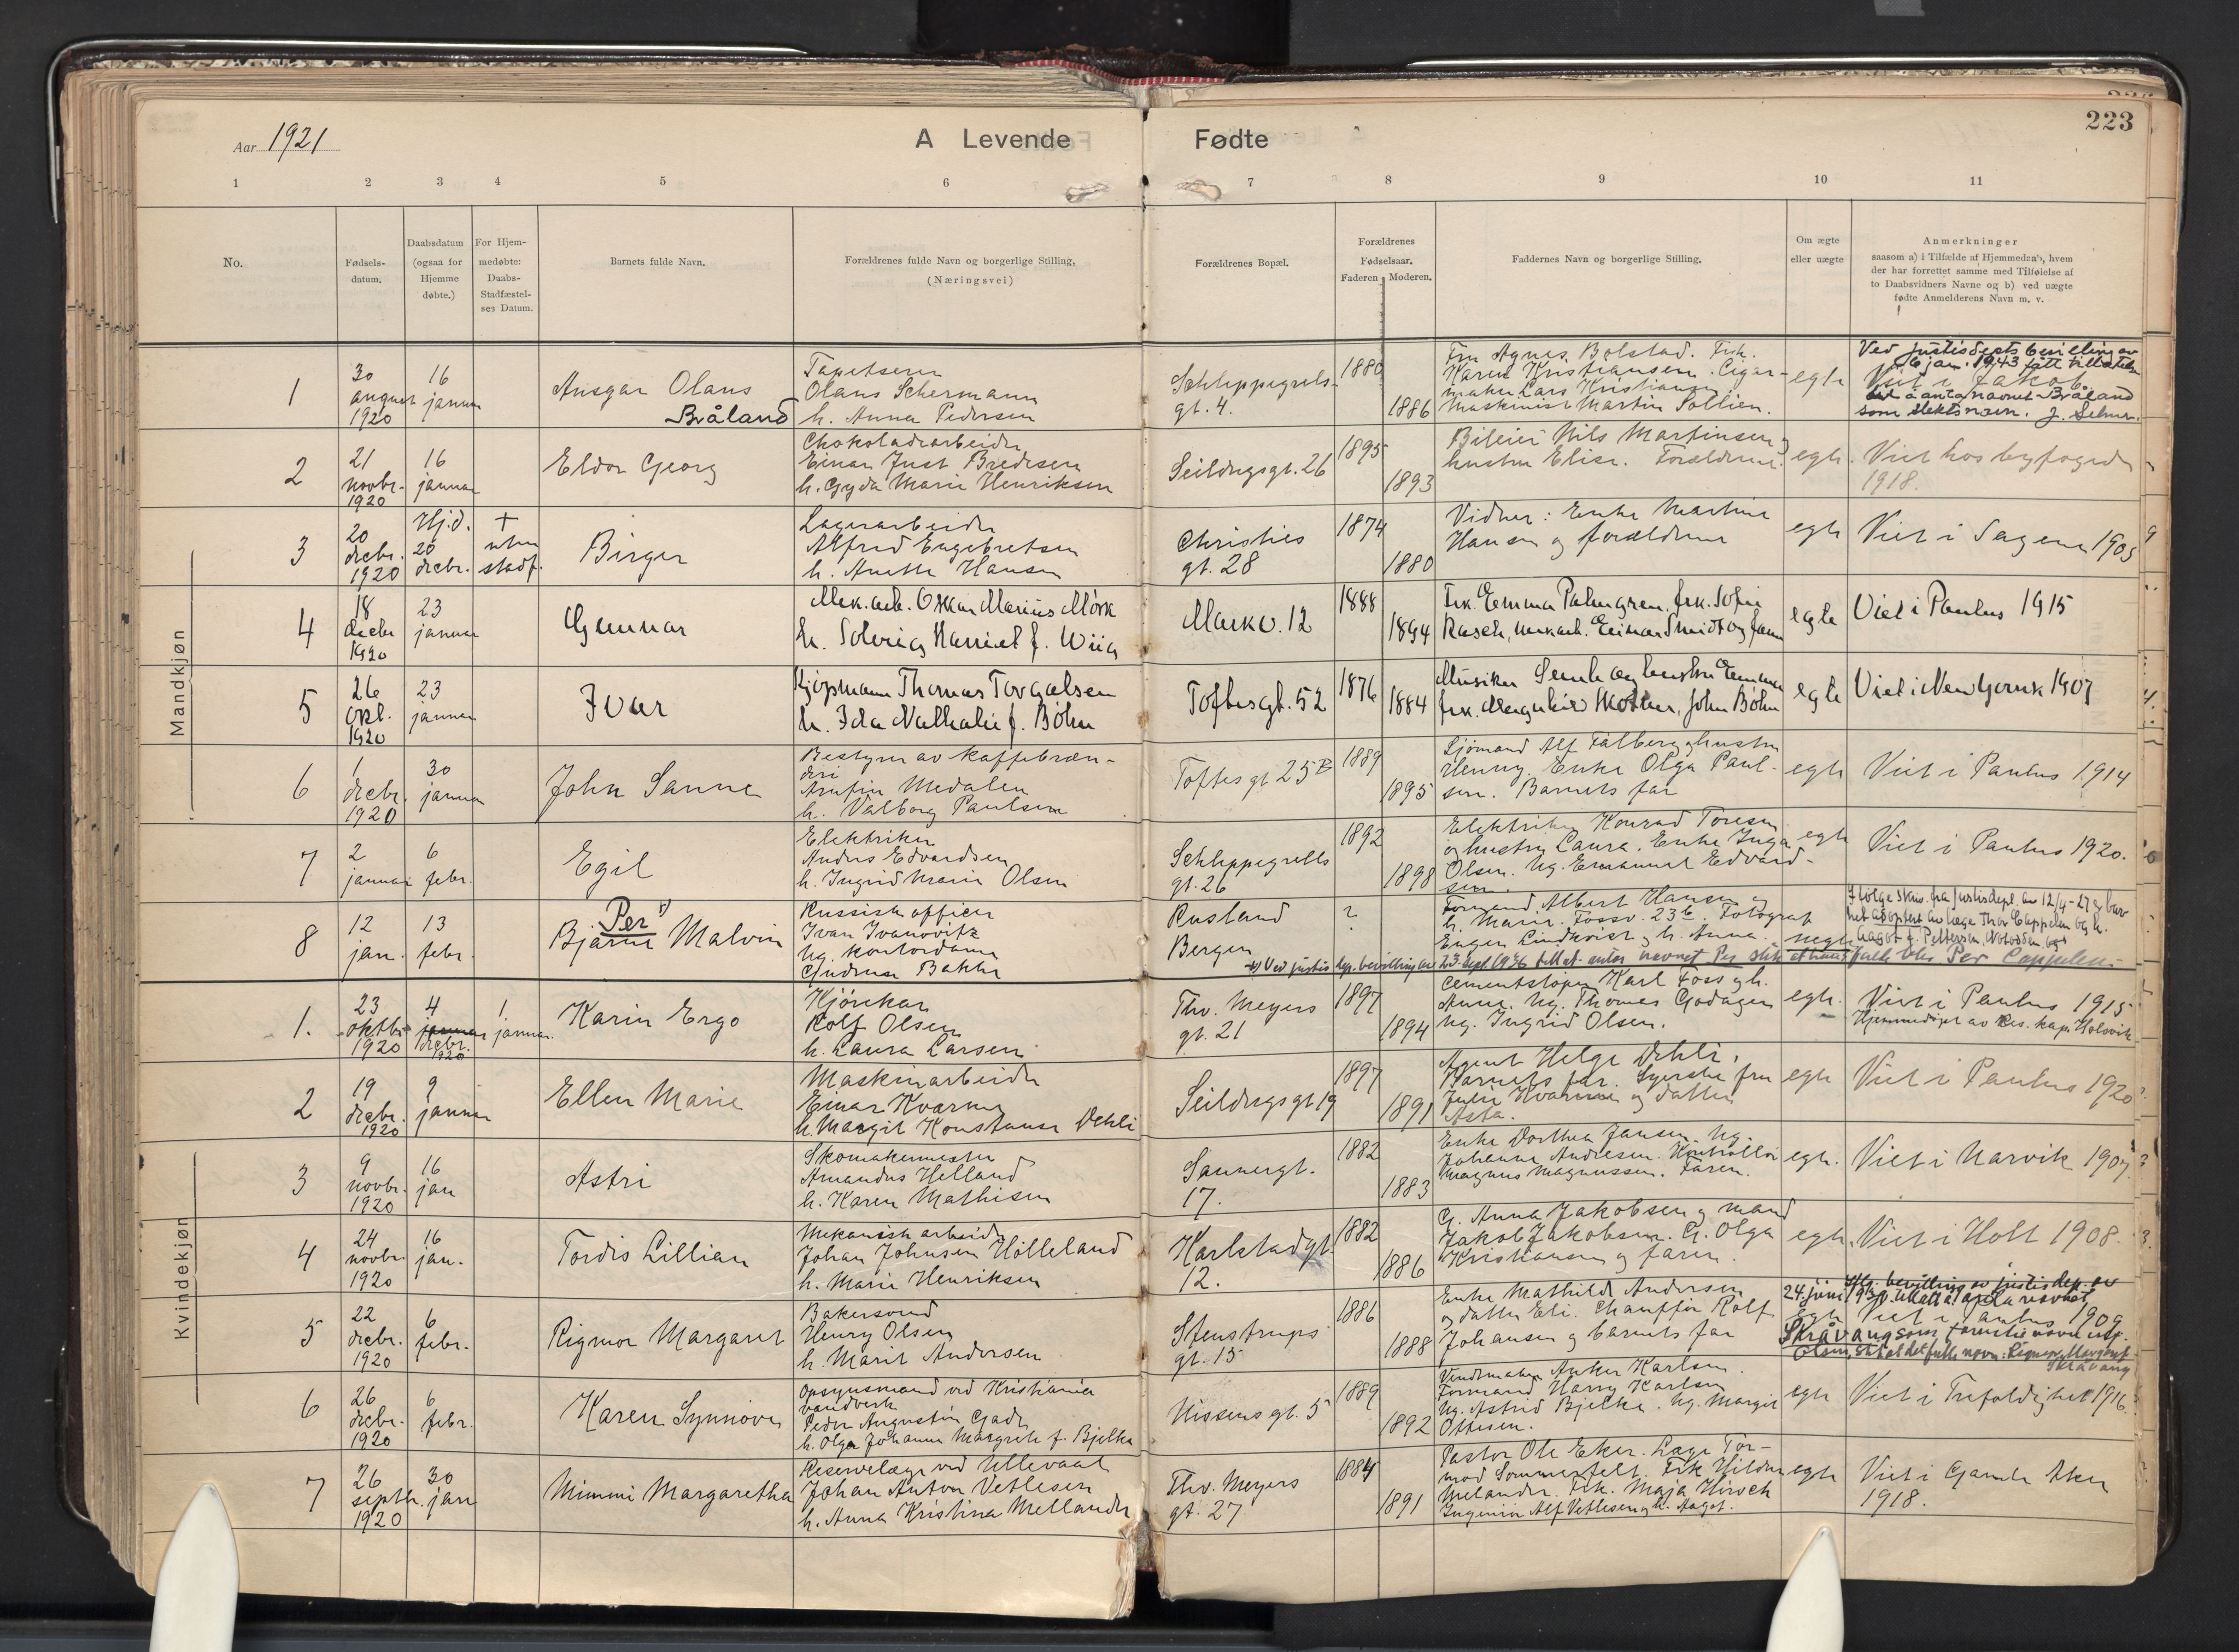 223
Aar 1921
A Levende Fødte
1 2 3 4 5 6 7 8 9 10 11
No.
Fødsels-
datum.
Daabsdatum
(ogsaa for
Hjemme
døbte.)
For Hjem-
medøbte:
Daabs-
Stadfæstel-
ses Datum.
Barnets fulde Navn.
Forældrenes fulde Navn og borgerlige Stilling.
(Næringsvei)
Forældrenes Bopæl.
Forældrenes
Fødselsaar.
Faderen Moderen.
Faddernes Navn og borgerlige Stilling.
Om ægte
eller uægte
Anmerkninger
saasom a) i Tilfælde af Hjemmedaab, hvem
der har forrettet samme med Tilføielse af
to Daabsvidners Navne og b) ved uægte
fødte Anmelderens Navn m. v.
Mandkjøn
1
30
august
1920
16
januar
Ansgar Olaus
Bråland
Tapetserer
Olaus Schermann
h. Anna Pedersen
Schleppegrels-
gt. 4.
1880
1886
Fru Agnes Bolstad. Frk.
Karen Kristiansen. Cigar-
maker Lars Kristiansen
Maskinist Martin Sollien.
egte
Ved justisdepts bevilling av
6 jan. 1943 fått tillatelse
Viet i Jakob
til å anta navnet Bråland
som slektsnavn. J. Selmer.
2
21
novbr.
1920
16
januar
Eldor Georg
Chokoladearbeider
Einar Just Bredesen
h. Gyda Marie Henriksen
Seildugsgt. 26
1895
1893
Bileier Nils Martinsen og
hustru Elise. Forældrene.
egte.
Viet hos byfogden
1918.
3
20
decbr.
1920
Hj.d.
20
decbr.
+
uten
stadf.
Birger
Lagerarbeider
Alfred Engebretsen
h. Anette Hansen
Christies
gt. 28
1874
1880
Vidner: Enke Martine
Hansen og forældrene
egte
Viet i Sagene 1905
4
18
decbr
1920
23
januar
Gunnar
Mek. arb. Oskar Marius Mörk
h. Solveig Harriet f. Wiig
Markv. 12
1888
1894
Frk. Emma Palmgren, frk. Sofie
Rasch, mek arb. Einar Smidt og faren
egte
Viet i Paulus 1915
5
26
okt.
1920
23
januar
Ivar
Kjøpmann Thomas Torgalsen
h. Ida Nathalie f. Böhn
Toftesgt. 52
1876
1884
Musiker Semb og hustru Emma
John Böhn
egte
Viet i New Yornk 1907
6
1
decbr.
1920
30
januar
John Sanne
Bestyrer av kaffebræn-
deri
Arnfin Medalen
h. Valborg Paulsen
Toftes gt 25 B
1889
1895
Sjömand Alf Falberg og hustru
Henny. Enke Olga Paul-
sen. Barnets far
egte
Viet i Paulus 1914
7
2
januar
6
febr.
Egil
Elektriker
Anders Edvardsen
h. Ingrid Marie Olsen
Schleppegrells
gt. 26
1892
1898
Elektriker Konrad Toresen
og hustru Laura. Enke Inga
Olsen. Ug. Emanuel Edvard-
sen.
egte
Viet i Paulus 1920.
8
12
jan.
13
febr.
Per x)
Bjarne Malvin
Russisk officer
Ivan Ivanovitz
Ug. kontordame
Gudrun Bakke
Rusland
Bergen
?
Formand Albert Hansen og
h. Marie. Fossv. 23 b. Fotograf
Eugen Lindkvist og h. Anna.
uegte
Ifölge skriv. fra Justisdept. av 12/4-27 er bar-
net adoptert av læge Thor Cappelen og h.
Aagot f. Pettersen, Notodden
x) Ved justis dep. bevilling av 23 sept. 1936 tillat antar navnet Per slik at hans fulle blir Per Cappelen.
Kvindekjøn
1.
23
oktbr
1920
4
januar
decbr.
1920
1
januar.
Karin Ergo
Kjörekar
Rolf Olsen
h. Laura Larsen
Thv. Meyers
gt. 21
1897
1894
Cementstöper Karl Foss og h.
Anne. Ug. Thomas Godager
Ug. Ingrid Olsen.
egte.
Viet i Paulus 1915
Hjemmedöpt av Res. kap. Holsvik
2
19
decbr.
1920
9
januar
Ellen Marie
Maskinarbeider
Einar Kværne
h. Margit Konstanse Dehli
Seildugsgt 19
1897
1891
Agent Helge Dehli.
Barnets far. Syerske fru
Julie Kværne og datter
Asta.
egte
Viet i Paulus 1920
3
9
novbr.
1920
16
jan
Astri
Skomakermester
Amandus Helland
h. Karen Mathisen
Sannergt.
17.
1882
1883
Enke Dorthea Jansen. Ug.
Johanne Andresen. Kontrollør
Magnus Magnussen. Faren.
egte.
Viet i Narvik 1907.
4
24
novbr.
1920
16
jan.
Tordis Lillian
Mekanisk arbeider
Johan Johnsen Hölleland
h. Marie Henriksen
Karlstadgt.
12.
1882
1886
G. Anna Jakobsen og mand
Jakob Jakobsen. G. Olga
Kristiansen og faren.
egte.
Viet i Holt 1908.
5
22
decbr.
1920
6
febr.
Rigmor Margaret
Bakersvend
Henry Olsen
h. Marit Andersen
Stenstrups
gt. 15
1886
1888
Enke Mathilde Andersen
og datter Eli. Chauffør Rolf
Johansen og barnets far
egte
Ifflg. bevilling av justisdep. av
24. juni
Viet i Paulus 1909
Skråvang som familienavn istf.
Olsen, slik at det fulle navn: Rigmor Margaret
Skråvang
6
26
decbr.
1920
6
febr.
Karen Synnöve
Opsynsmand ved Kristiania
vandverk
Peder Augustin Gade
h. Olga Johanne Margrete f. Bjelke
Nissens gt. 5
1889
1892
Anker Karlsen
Formand Harry Karlsen
Ug. Astrid Bjelke. Ug. Margit
Ottesen.
egte
Viet i Trefoldighet 1916.
7
26
septbr.
1920
30
jan
Mimmi Margaretha
Reservelæge ved Ullevaal
Johan Anton Vetlesen
h. Anna Kristina Mellander
Thv. Meyers
gt. 27
1884
1891
Pastor Ole Eker. Læge Tor-
mod Sommerfelt. Frk Hildur
Melander. Frk. Maja Hirsch
Ingeniör Alf Vetlesen og h. Aagot.
egte
Viet i Gamle Aker
1918.